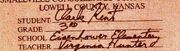 LOWELL COUNTY, KANSAS
Student Clark Kent
Grade 3rd
School Eisenhower Elementary
Teacher Virginia Hunter